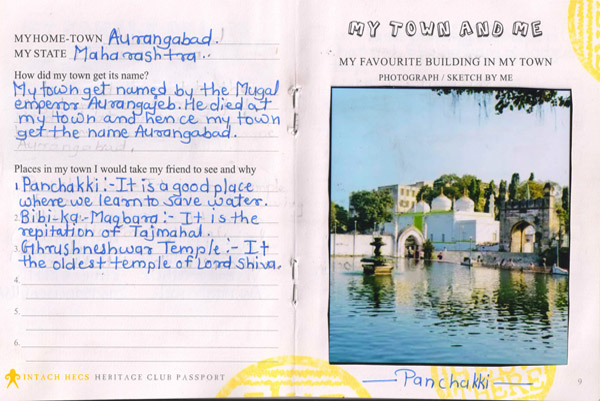 MY HOME-TOWN Aurangabad.
MY STATE Maharashtra..
How did my town get its name?
My town get named by the Mugal
emperor Aurangajeb. He died at
my town and hence my town
get the name Aurangabad.
Places in my town I would take my friend to see and why
1. Panchakki :- It is a good place
where we learn to save water.
2. Bibi-ka-Maqbara :- It is the
repitation of Tajmahal.
3. Ghrushneshwar Temple :- It
the oldest temple of Lord Shiva.
4.
5.
6.
INTACH HECS HERITAGE CLUB PASSPORT
MY TOWN AND ME
MY FAVOURITE BUILDING IN MY TOWN
PHOTOGRAPH / SKETCH BY ME
Panchakki
9